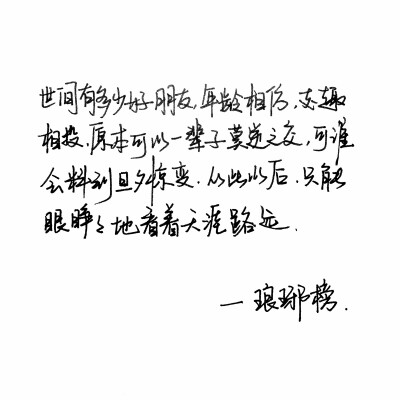 世间有多少好朋友,年龄相仿,志趣
相投,原本可以一辈子莫逆之交,可谁
会料到旦夕惊变.从此以后.只能
眼睁々地看着天涯路远.
一琅琊榜.